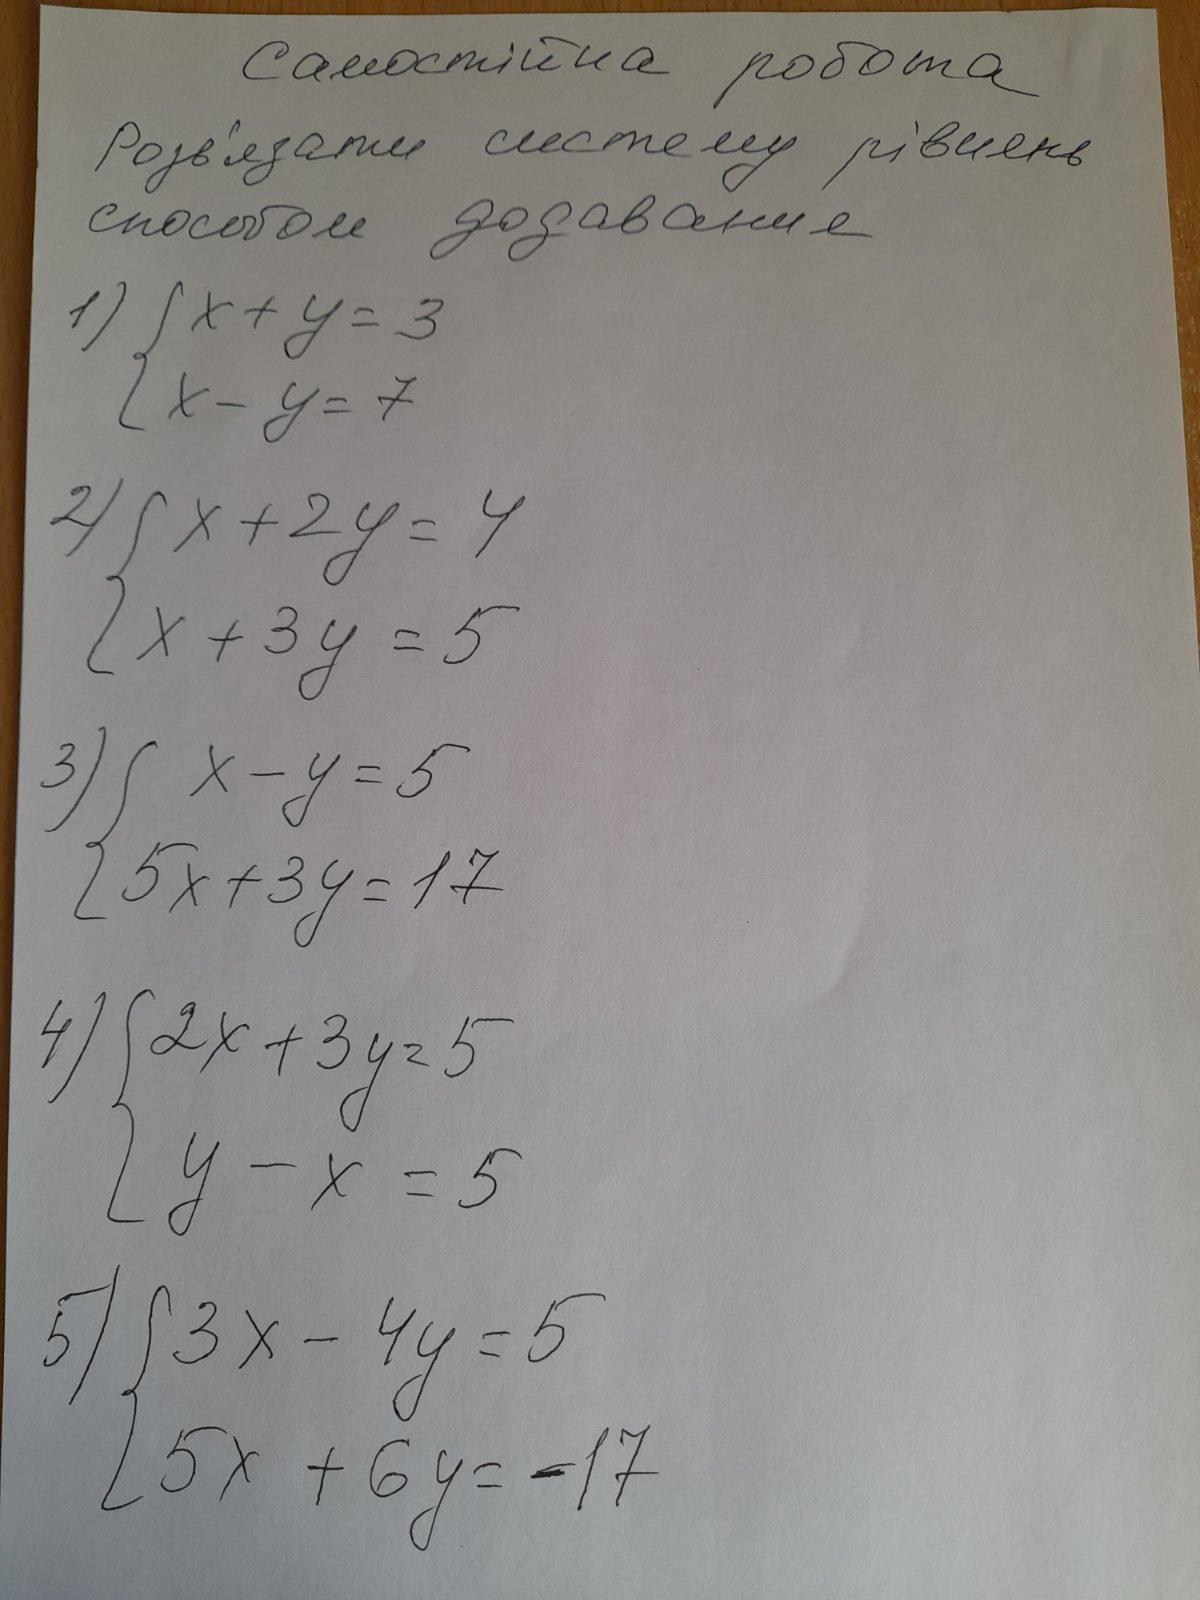 Самостійна робота
Розв'язати систему рівнень
способом додавание
1) { x + y = 3
x - y = 7
2) { x + 2y = 4
x + 3y = 5
3) { x - y = 5
5x + 3y = 17
4) { 2x + 3y = 5
y - x = 5
5) { 3x - 4y = 5
5x + 6y = -17